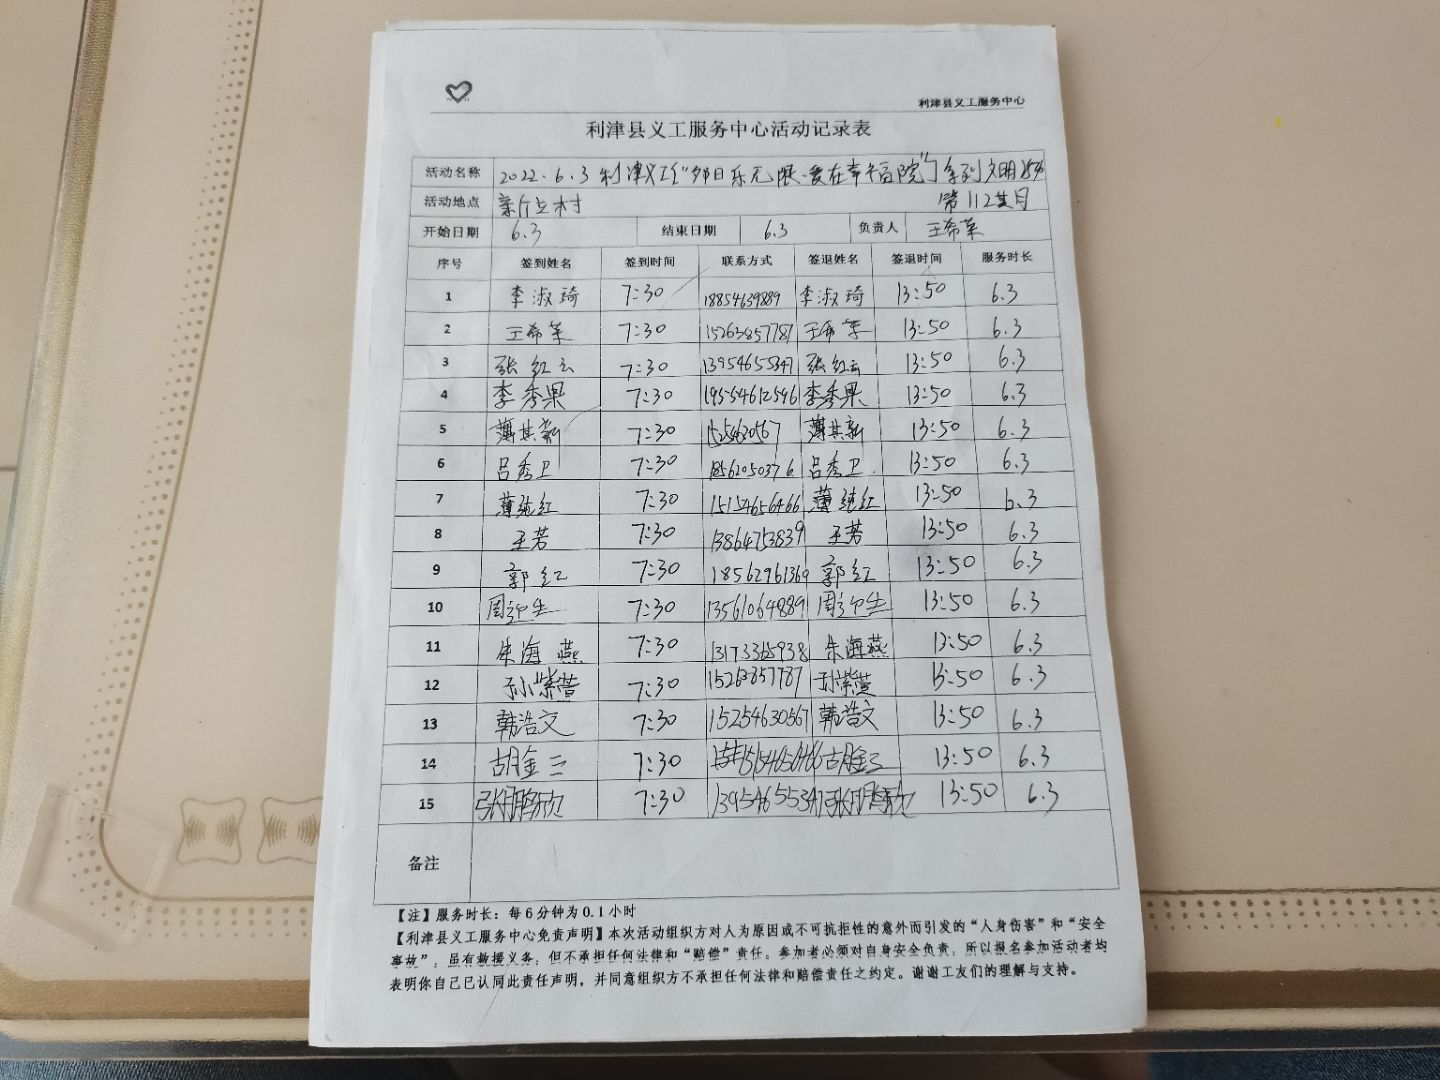 利津县义工服务中心
利津县义工服务中心活动记录表
活动名称 2022.6.3利津义工"夕阳乐无限、爱在幸福院"
活动地点 第112期
开始日期 6.3 结束日期 6.3 负责人 王希苹
序号 签到姓名 签到时间 联系方式 签退姓名 签退时间 服务时长
1 李淑琦 7:30 18854639889 李淑琦 13:50 6.3
2 王希苹 7:30 15263857787 王希苹 13:50 6.3
3 张红云 7:30 13954655347 张红云 13:50 6.3
4 李秀果 7:30 19554612546 李秀果 13:50 6.3
5 薄其新 7:30 薄其新 13:50 6.3
6 吕秀卫 7:30 18562050376 吕秀卫 13:50 6.3
7 薄纯红 7:30 15154656466 薄纯红 13:50 6.3
8 王芳 7:30 13864753839 王芳 13:50 6.3
9 郭红 7:30 18562961369 郭红 13:50 6.3
10 7:30 13561064889 13:50 6.3
11 朱海燕 7:30 13173365938 朱海燕 13:50 6.3
12 孙紫萱 7:30 15263857787 孙紫萱 13:50 6.3
13 韩浩文 7:30 15254630567 韩浩文 13:50 6.3
14 胡金三 7:30 胡金三 13:50 6.3
15 张鹏欣 7:30 13954655347 张鹏欣 13:50 6.3
备注
【注】服务时长：每6分钟为0.1小时
【利津县义工服务中心免责声明】本次活动组织方对人为原因或不可抗拒性的意外而引发的“人身伤害”和“安全
事故”，虽有救援义务，但不承担任何法律和“赔偿”责任。参加者必须对自身安全负责，所以报名参加活动者均
表明你自己已认同此责任声明，并同意组织方不承担任何法律和赔偿责任之约定。谢谢工友们的理解与支持。